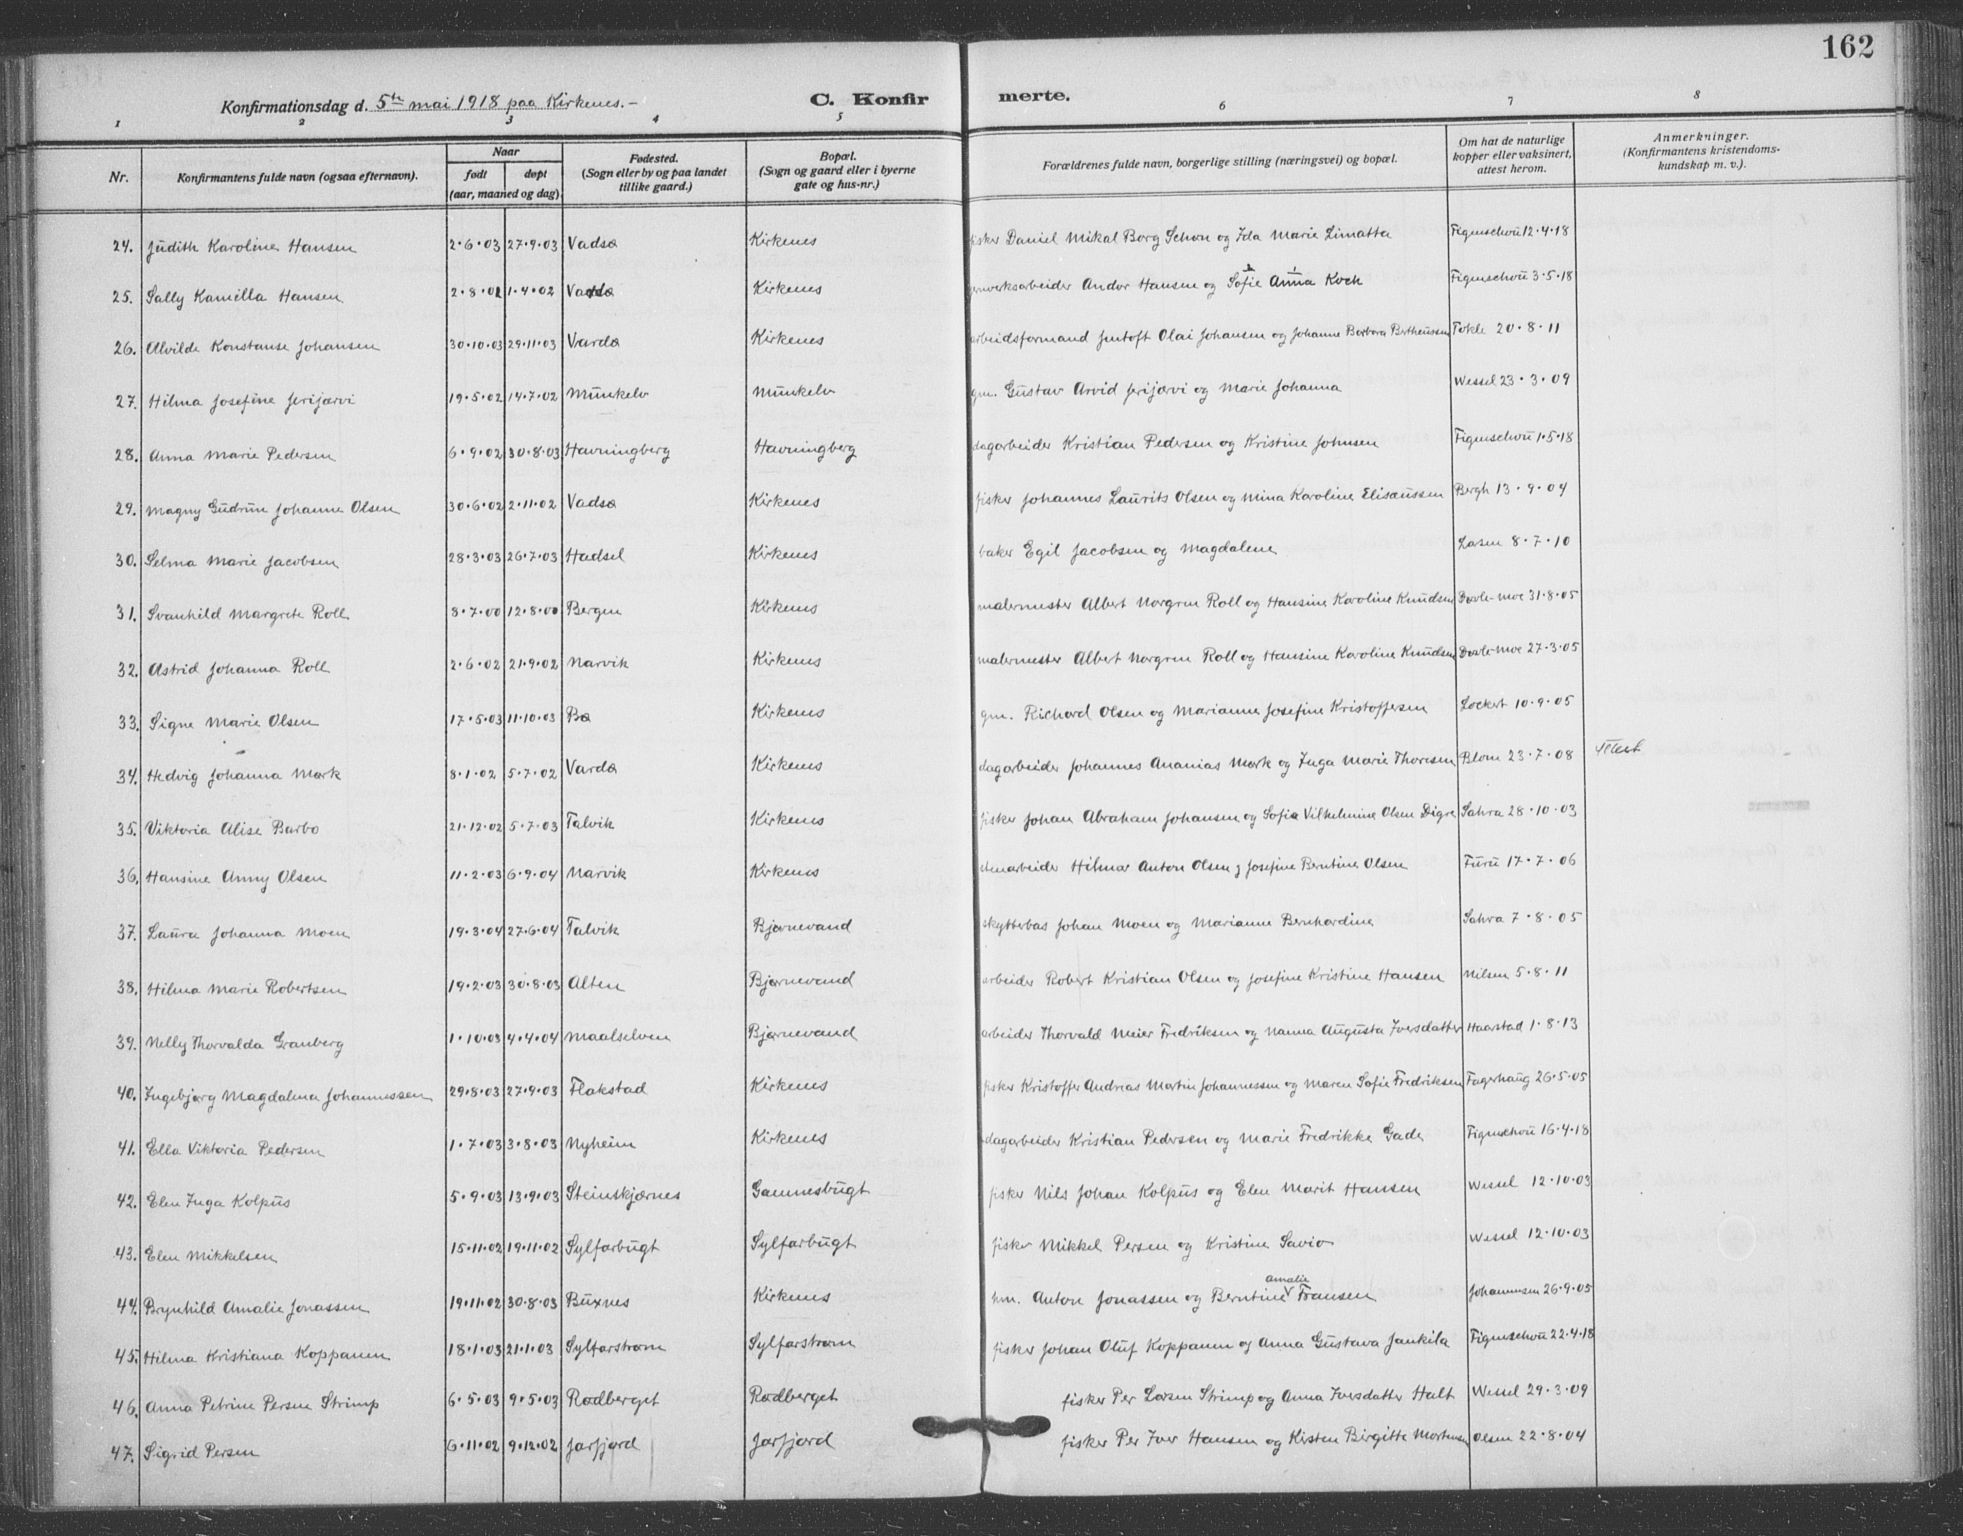 162
Konfirmationsdag d. 5te mai 1918 paa Kirkenes.- C. Konfir merte.
1 2 3 4 5 6 7 8
Nr. Konfirmantens fulde navn (ogsaa efternavn). Naar født døpt (aar, maaned og dag) Fødested. (Sogn eller by og paa landet tillike gaard.) Bopæl. (Sogn og gaard eller i byerne gate og hus-nr.) Forældrenes fulde navn, borgerlige stilling (næringsvei) og bopæl. Om hat de naturlige kopper eller vaksinert, attest herom. Anmerkninger. (Konfirmantens kristendoms- kundskap m. v.).
24. Judith Karoline Hansen 2·6·03 27·9·03 Vadsø Kirkenes fisker Daniel Mikal Borg Schøn og Ida Marie Limatta Figenschou 12·4·18
25. Sally Kamilla Hansen 2·8·01 1·4·02 Vadsø Kirkenes jernverksarbeider Andor Hansen og Sofie Anna Koch Figenschou 3·5·18
26. Alvilde Konstanse Johansen 30·10·03 29·11·03 Vardø Kirkenes arbeidsformand Jentoft Olai Johansen og Johanne Barbara Bertheussen Tokle 20·8·11
27. Hilma Josefine Jerijærvi 19·5·02 14·7·02 Munkelv Munkelv gm. Gustav Arvid Jerijærvi og Marie Johanna Wessel 23·3·09
28. Anna Marie Pedersen 6·9·02 30·8·03 Havningberg Havningberg dagarbeider Kristian Pedersen og Kristine Johnsen Figenschou 1·5·18
29. Magny Gudrun Johanne Olsen 30·6·02 2·11·02 Vadsø Kirkenes fisker Johannes Laurits Olsen og Mina Karoline Elisæussen Bergh 13·9·04
30. Selma Marie Jacobsen 28·3·03 26·7·03 Hadsel Kirkenes baker Egil Jacobsen og Magdalene Larsen 8·7·10
31. Svanhild Margrete Roll 8·7·00 12·8·00 Bergen Kirkenes malermester Albert Norgren Roll og Hansine Karoline Knudsen Dovle-Moe 31·8·05
32. Astrid Johanna Roll 2·6·02 21·9·02 Narvik Kirkenes malermester Albert Norgren Roll og Hansine Karoline Knudsen Dovle-Moe 27·3·05
33. Signe Marie Olsen 17·5·03 11·10·03 Bø Kirkenes gm. Richard Olsen og Marianne Josefine Kristoffersen Lockert 10·9·05
34. Hedvig Johanna Mørk 8·1·02 5·7·02 Vardø Kirkenes dagarbeider Johannes Ananias Mørk og Inga Marie Thoresen Blom 23·7·08
35. Viktoria Alise Barbo 21·12·02 5·7·03 Talvik Kirkenes fisker Johan Abraham Johansen og Sofie Vilhelmine Olsen Digre Sahra 28·10·03
36. Hansine Anny Olsen 11·2·03 6·9·04 Narvik Kirkenes stenarbeider Hilmar Anton Olsen g Josefine Berntine Olsen Furu 17·7·06
37. Laura Johanna Moen 19·3·04 27·6·04 Talvik Bjørnevand skytterbas Johan Moen og Marianne Bernhardine Sahra 7·8·05
38. Hilma Marie Robertsen 19·2·03 30·8·03 Alten Bjørnevand arbeider Robert Kristian Olsen og Josefine Kristine Hansen Nilsen 5·8·11
39. Nelly Thorvalda Granberg 1·10·03 4·4·04 Maalselven Bjørnevand arbeider Thorvald Meier Fredriksen og Nanna Augusta Iversdatter Haarstad 1·8·13
40. Ingebjørg Magdalena Johannessen 29·8·03 27·9·03 Flakstad Kirkenes fisker Kristoffer Andreas Martin Johannessen og Maren Sofie Fredriksen Fagerhaug 26·5·05
41. Ella Viktoria Pedersen 1·7·03 3·8·03 Nyheim Kirkenes dagarbeider Kristian Pedersen og Marie Fredrikke Gade Figenschou 16·4·18
42. Elen Inga Kolpus 5·9·03 13·9·03 Steinskjærnes Gamnesbugt fisker Nils Johan Kolpus og Elen Marit Hansen Wessel 12·10·03
43. Elen Mikkelsen 15·11·02 19·11·02 Sylfarbugt Sylfarbugt fisker Mikkel Persen og Kristine Savio Wessel 12·10·03
44. Brynhild Amalie Jonassen 19·11·02 30·8·03 Buxnes Kirkenes hm. Anton Jonassen og Berntine Amalie Fransen Johannesen 26·9·05
45. Hilma Kristiana Koppanen 18·1·03 21·1·03 Sylfarstrøm Sylfarstrøm fisker Johan Oluf Koppanen og Anna Gustava Jankila Figenschou 22·4·18
46. Anna Petrine Persen Strimp 6·5·03 9·5·03 Rødberget Rødberget fisker Per Larsen Strimp og Anna Iversdatter Halt Wessel 29·3·09
47. Sigrid Persen 6·11·02 9·12·02 Jarfjord Jarfjord fisker Per Iver Hansen og Kirsten Birgitte Mortensen Olsen 22·8·04